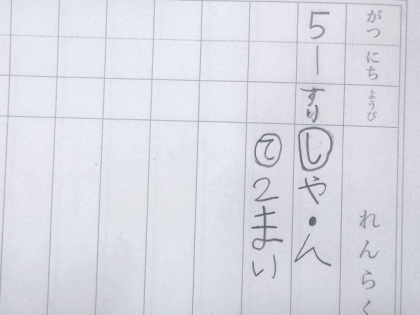 がつ にち ようび れんらく
5 1 しや・ん
て2まい